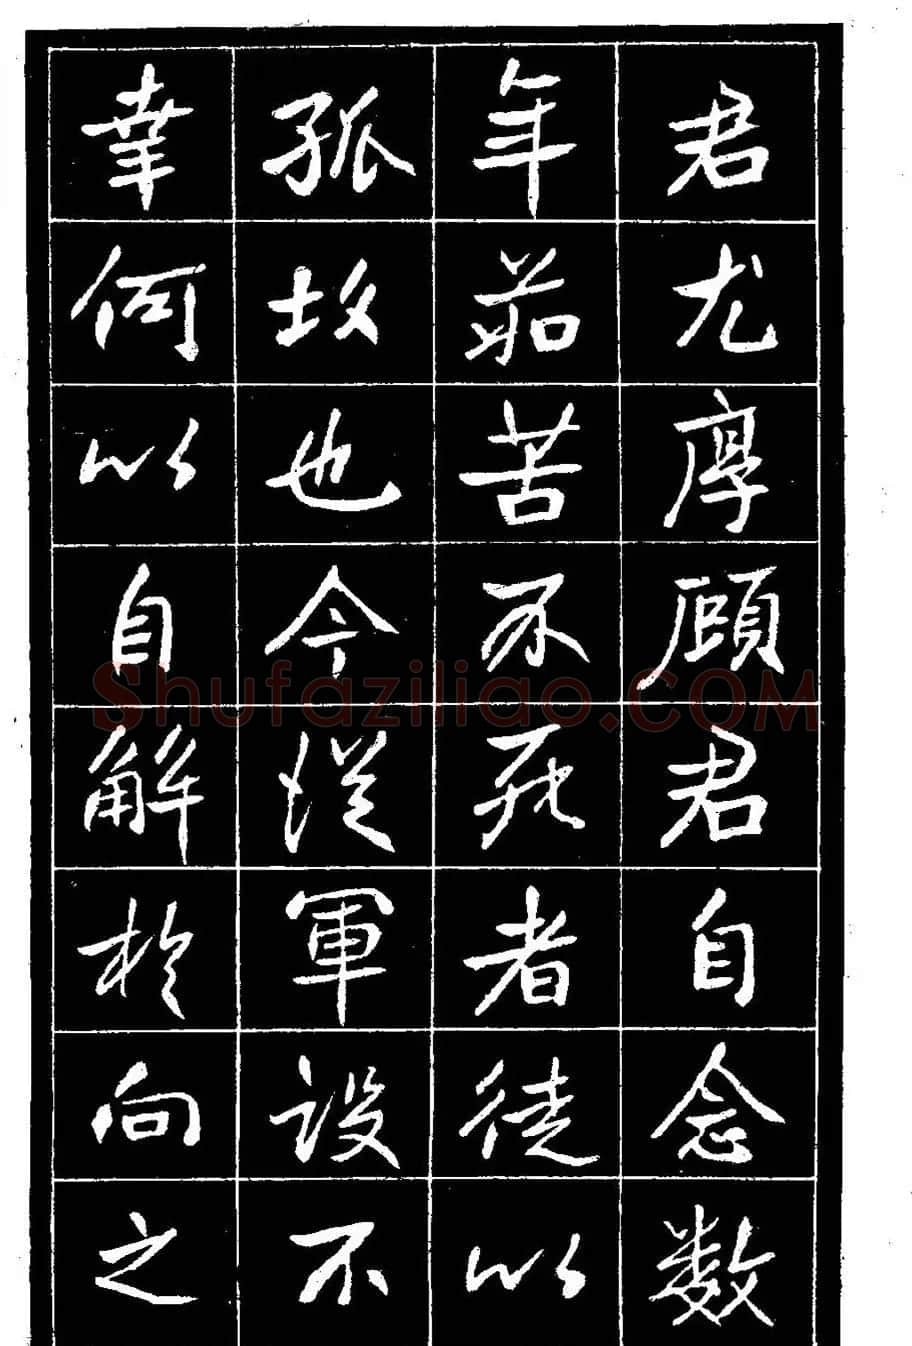 君尤厚顾君自念数
年茹苦不死者徒以
孤故也今從軍設不
幸何以自解於向之
Shufaziliao.COM